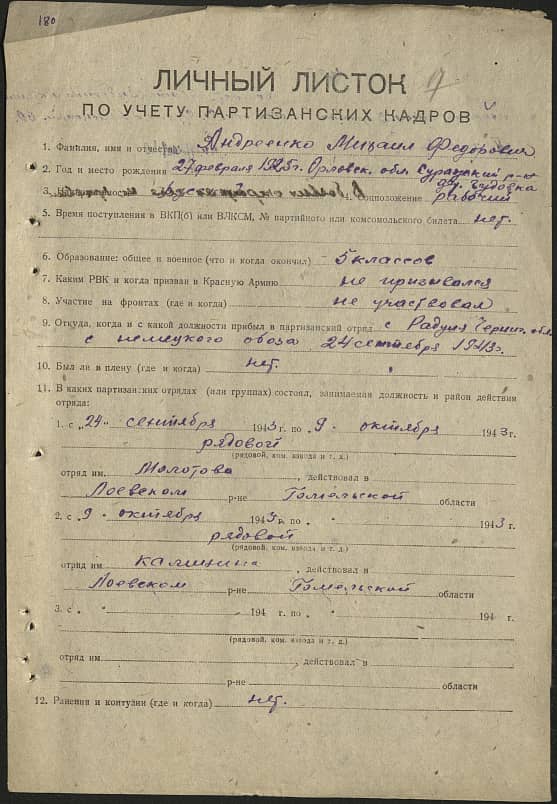 180
ЛИЧНЫЙ ЛИСТОК
ПО УЧЕТУ ПАРТИЗАНСКИХ КАДРОВ
1. Фамилия, имя и отчество Андреенко Михаил Федорович
2. Год и место рождения 27 февраля 1925 г. Орловск. обл. Суражский р-н
дер. Будовка
3. 4. Соцположение рабочий
5. Время поступления в ВКП(б) или ВЛКСМ, № партийного или комсомольского билета нет.
6. Образование: общее и военное (что и когда окончил) 5 классов
7. Каким РВК и когда призван в Красную Армию не призывался
8. Участие на фронтах (где и когда) не участвовал
9. Откуда, когда и с какой должности прибыл в партизанский отряд с Радуля Черниг. обл.
с немецкого обоза 24 сентября 1943 г.
10. Был ли в плену (где и когда) нет.
11. В каких партизанских отрядах (или группах) состоял, занимаемая должность и район действия
отряда:
1. с „24" сентября 1943 г. по „9. октября 1943 г.
рядовой
(рядовой, ком. взвода и т. д.)
отряд им. Молотова, действовал в
Лоевском р-не Гомельской области
2. с „9. октября 1943 г. по „ " 1943 г.
рядовой
(рядовой, ком. взвода и т. д.)
отряд им. Калинина, действовал в
Лоевском р-не Гомельской области
3. с „ " 194 г. по „ " 194 г.
(рядовой, ком. взвода и т. д.)
отряд им. , действовал в
р-не области
12. Ранения и контузии (где и когда) нет.